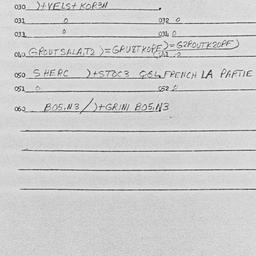 030 )+VELS+KOR3N
031 0 032 0
033 0 034 0
040 GROUTSALA,T2 )=GRU2TKOPF)=G2ROUTK2OPF)
050 SHERC )+STOC3 FRENCH LA PARTIE
051 0 052 0
060 BOS,N3/)+GRINI BOS,N3